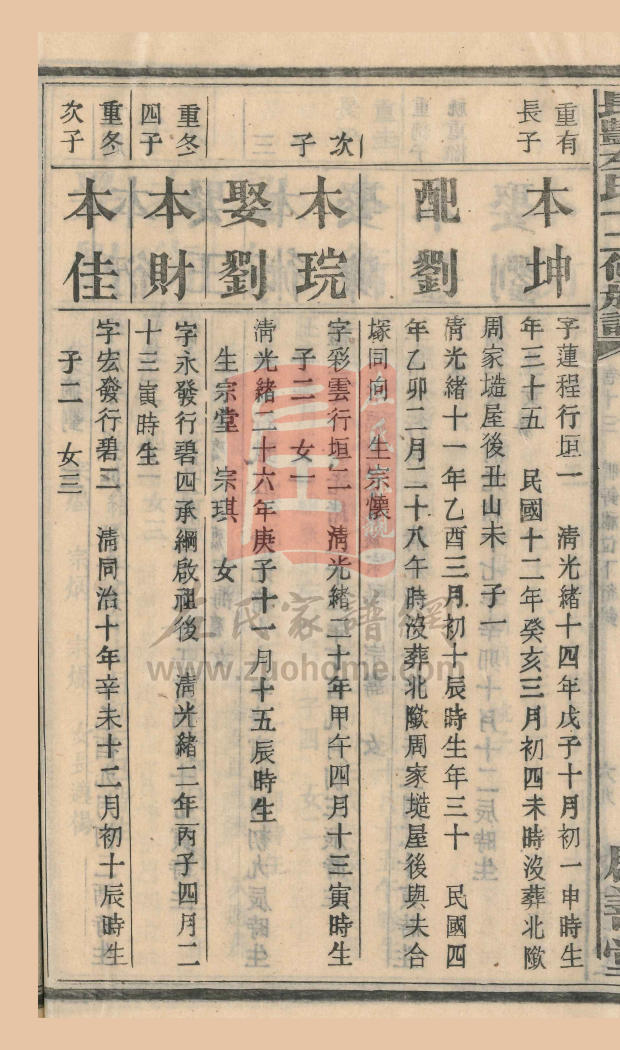 重有
長子
本坤
字蓮程行垣一　清光緒十四年戊子十月初一申時生
年三十五　民國十二年癸亥三月初四未時沒葬北歐
周家塏屋後丑山未　子一
配劉
清光緒十一年乙酉三月初十辰時生年三十　民國四
年乙卯二月二十八午時沒葬北歐周家塏屋後與夫合
塚同向　生宗懷
次
子
本琓
字彩雲行垣二　清光緒二十年甲午四月十三寅時生
子二　女一
娶劉
清光緒二十六年庚子十一月十五辰時生
生宗堂　宗琪　女
重冬
四子
本財
字永發行碧四承綱啟祖後　清光緒二年丙子四月二
十三寅時生
重冬
次子
本佳
字宏發行碧二　清同治十年辛未十二月初十辰時生
子二　女三
左氏家譜網
www.zuohome.com